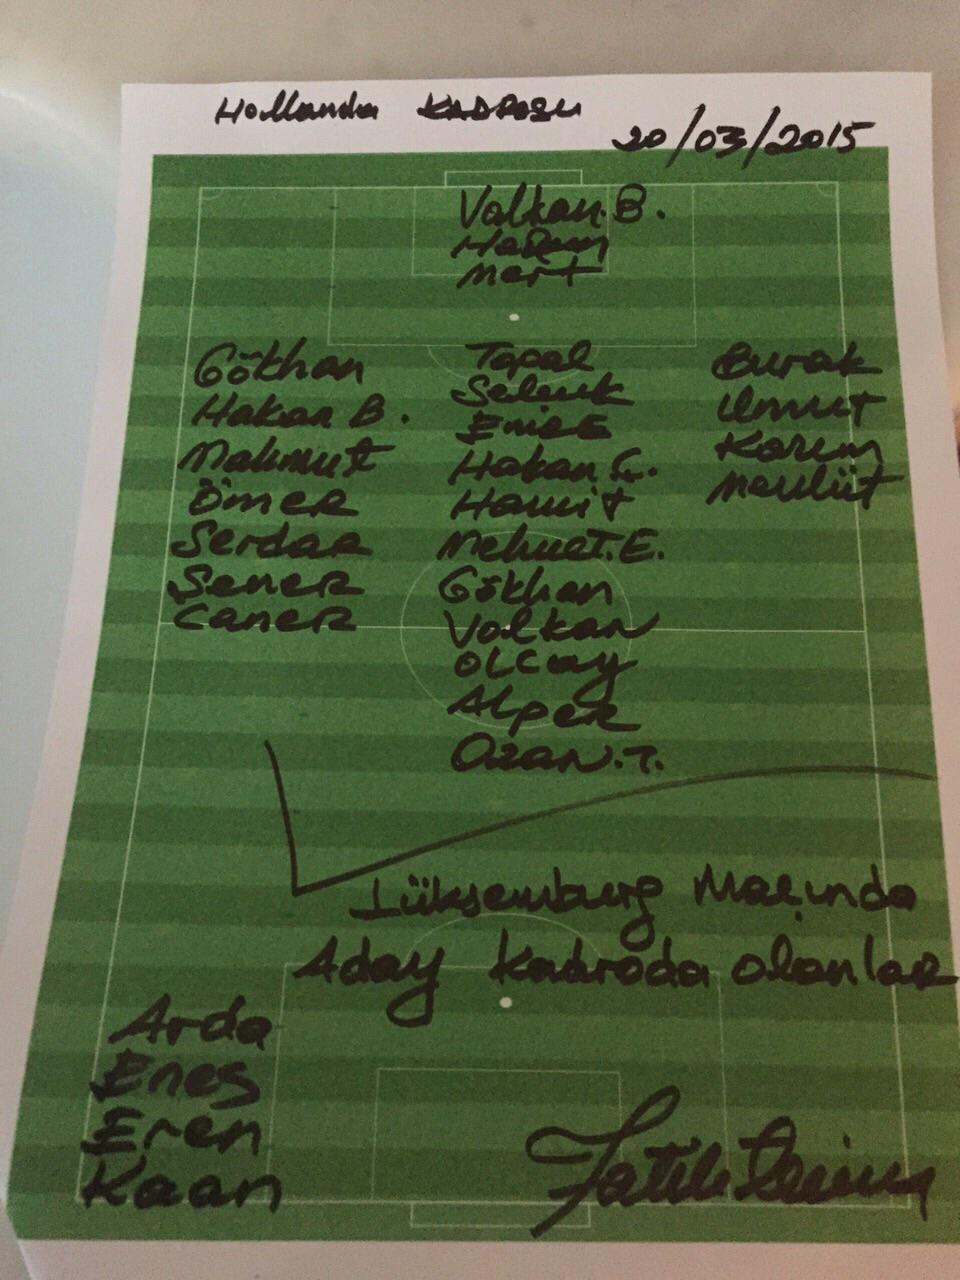 Hollanda KADROSU
20/03/2015
Volkan.B.
Harun
Mert
Gökhan
Hakan B.
Mahmut
Ömer
Serdar
Şener
Caner
Topal
Selçuk
Emre
Hakan Ç.
Hamit
Mehmet.E.
Gökhan
Volkan
Olcay
Alper
Ozan.T.
Burak
Umut
Kazım
Mevlüt
Lüksemburg Maçında
Aday kadroda olanlar
Arda
Enes
Eren
Kaan
Fatih Terim